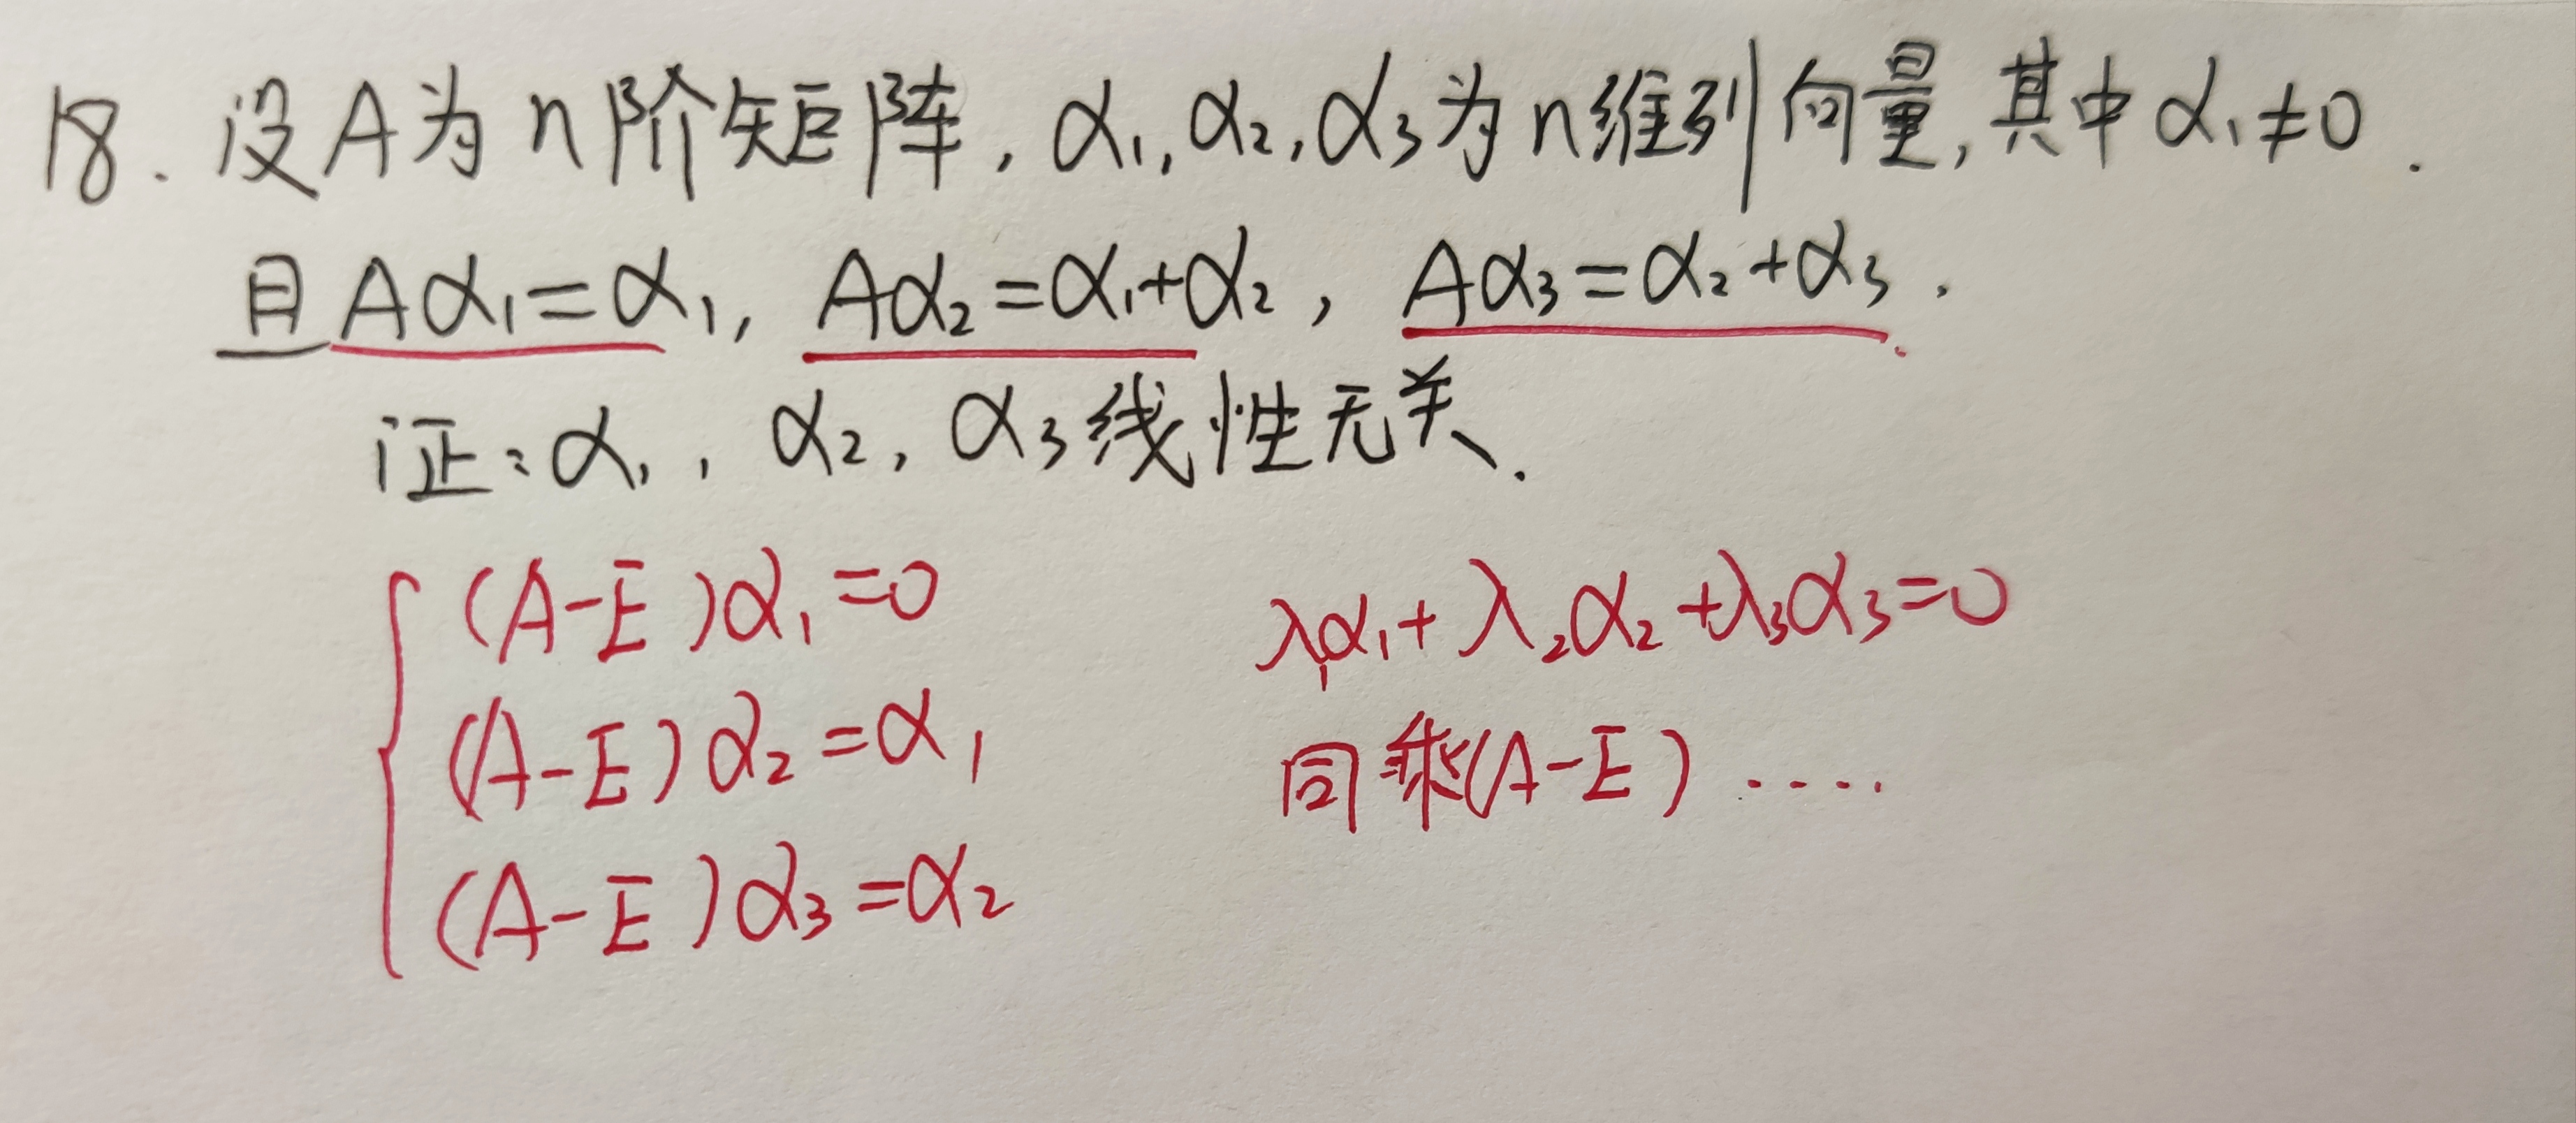 18. 设A为n阶矩阵, α₁, α₂, α₃为n维列向量, 其中α₁≠0.
且Aα₁=α₁, Aα₂=α₁+α₂, Aα₃=α₂+α₃.
证: α₁, α₂, α₃线性无关.
(A-E)α₁=0
(A-E)α₂=α₁
(A-E)α₃=α₂
λ₁α₁+λ₂α₂+λ₃α₃=0
同乘(A-E) ·····